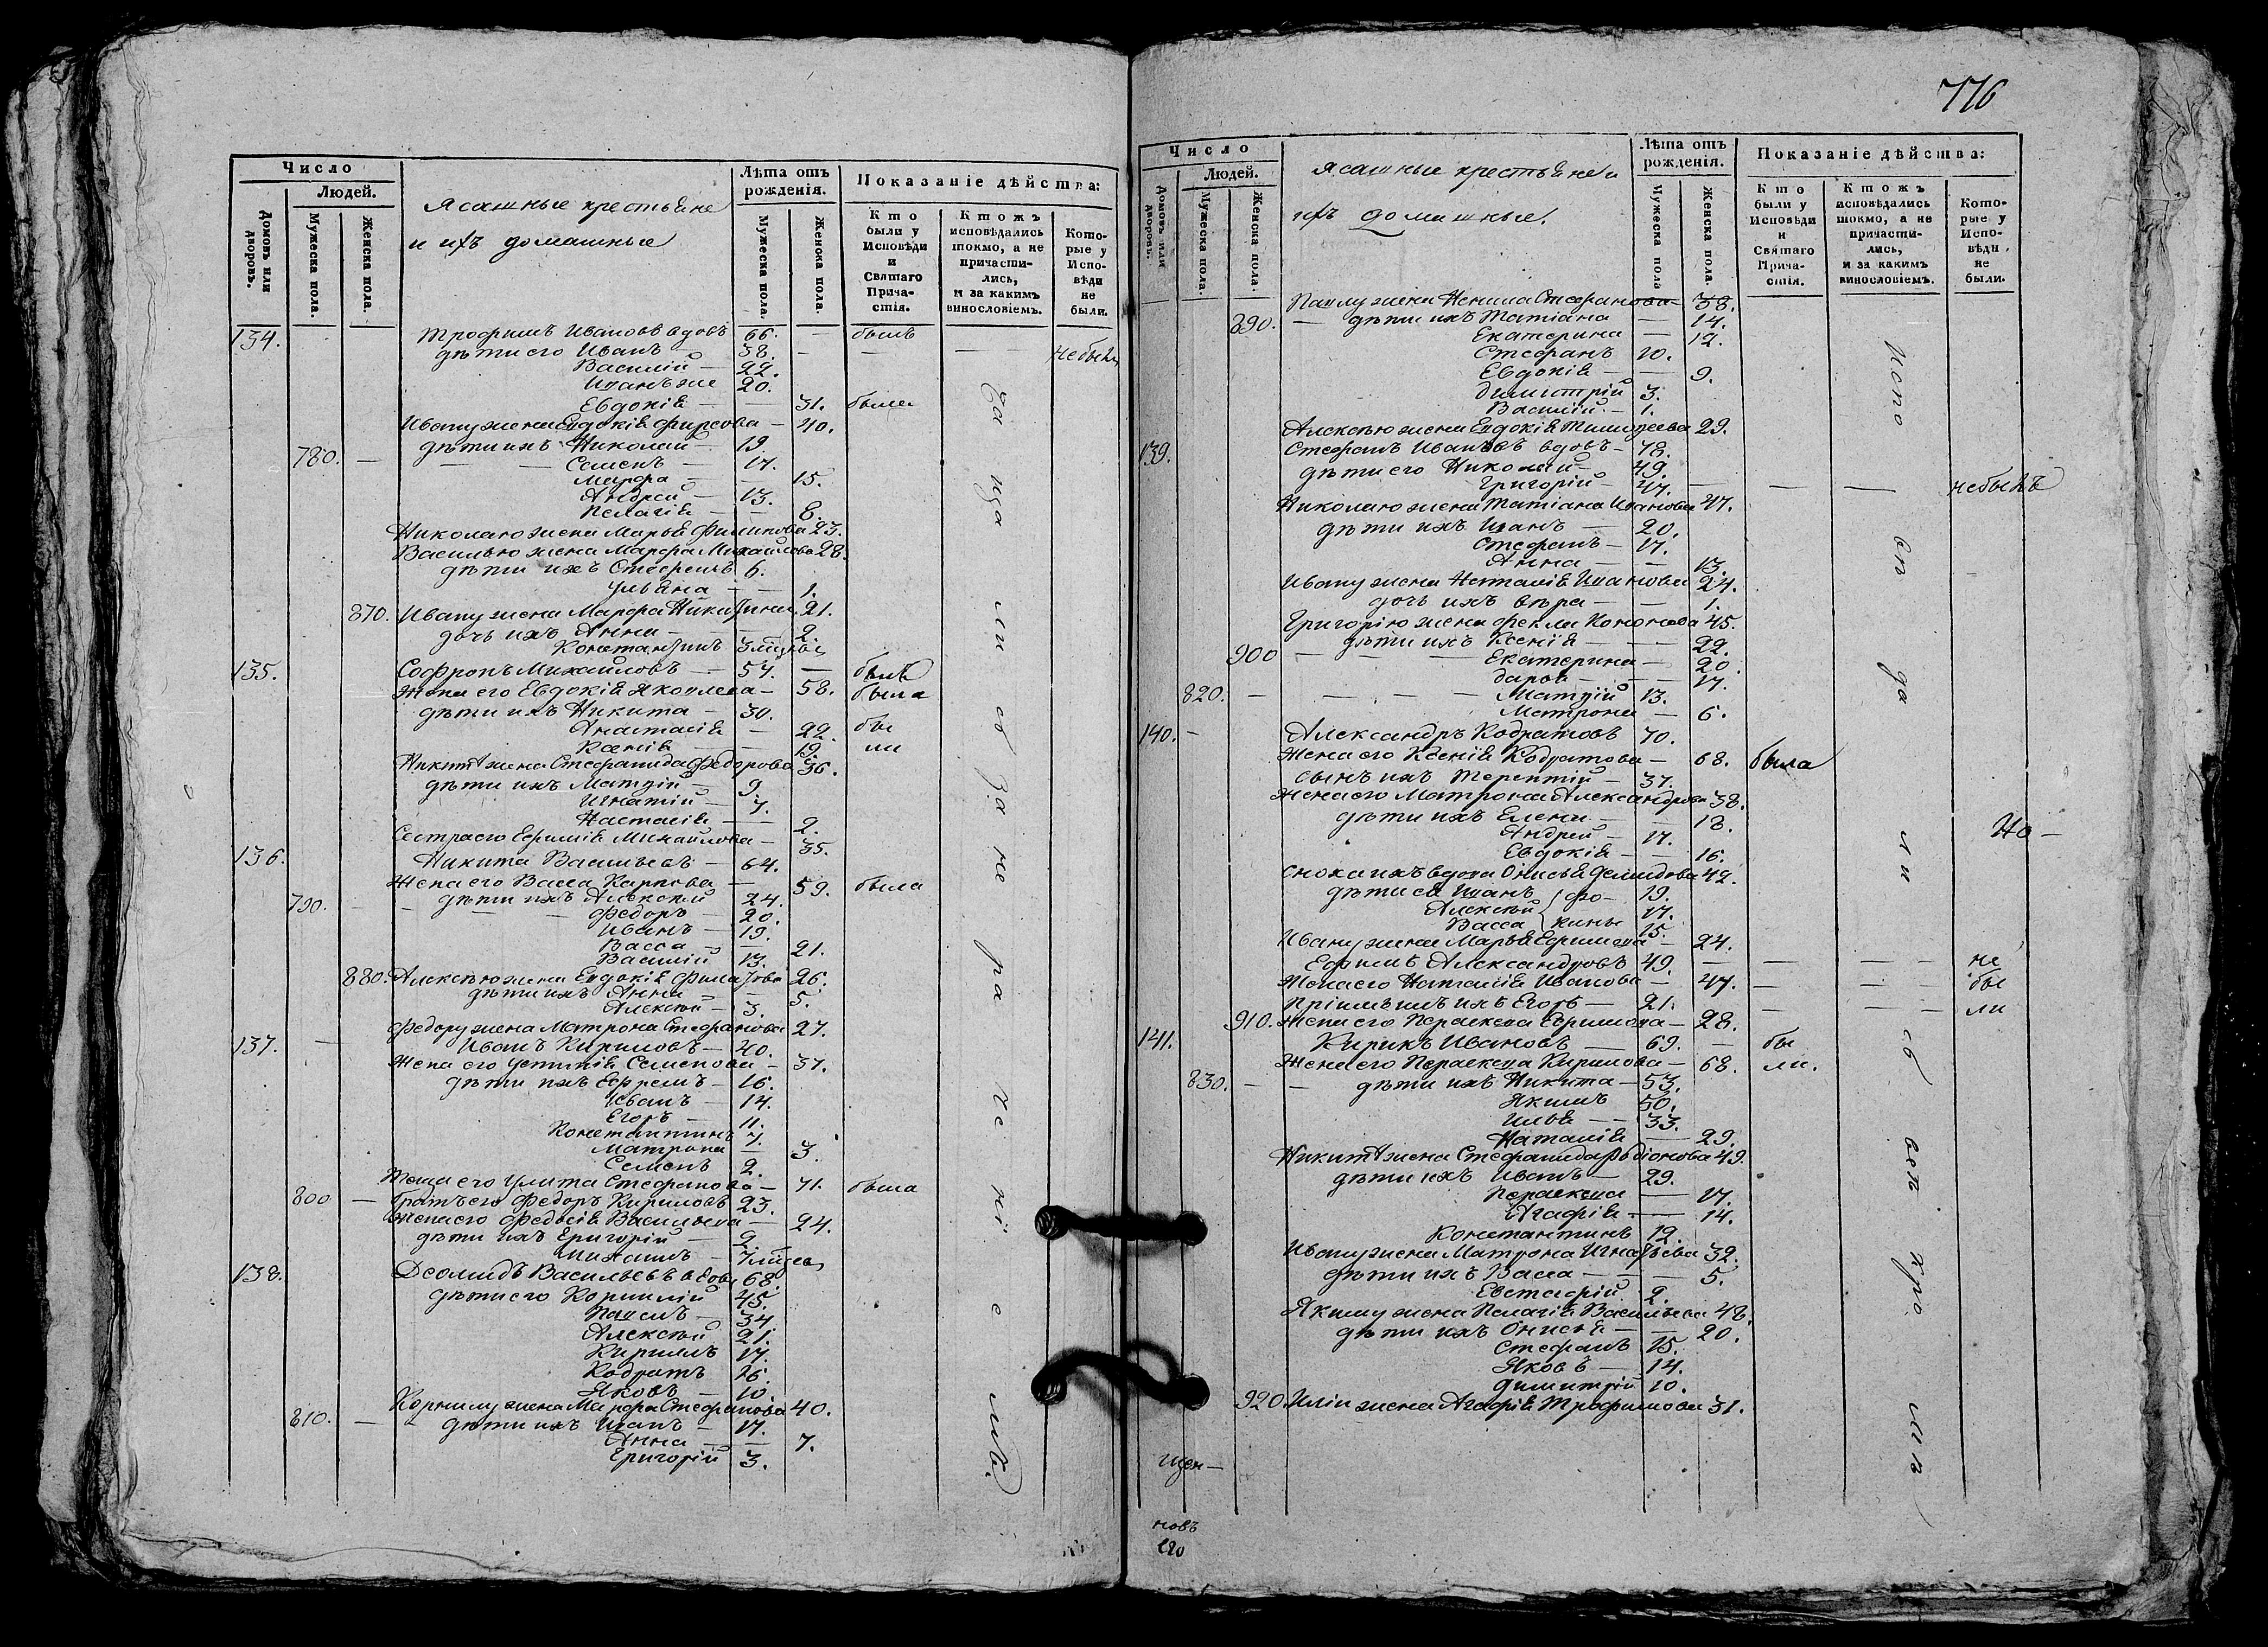 Число
Людей.
Домовъ или дворовъ.
Мужеска пола.
Женска пола.
Ясашные крестьяне
и ихъ домашные
Лѣта отъ рожденія.
Мужеска пола.
Женска пола.
Показаніе дѣйства:
Кто были у Исповѣди и Святаго Причастія.
Ктожъ исповѣдались токмо, а не причастились, и за какимъ винословіемъ.
Которые у Исповѣди не были.
134. Трофимъ Ивановъ вдовъ 66. — былъ
дѣти его Иванъ 38. — — — небылъ
Василій — 22.
Иванъ же 20.
Евдокія — — 31. была
Ивану жена Евдокія Фирсова — 40.
дѣти ихъ Николай — 19.
780. — — — Семенъ — 17.
Марфа — — 15.
Андрей — 13.
Пелагія — — 8.
Николаю жена Марья Филипова 23.
Василью жена Марфа Михайлова 28.
дѣти ихъ Стефанъ 6.
Ульяна — — 1.
870. Ивану жена Марфа Никитина 21.
дочь ихъ Анна — — 2.
Константинъ 3 мѣсяцовъ
135. Софронъ Михайловъ — 57. — былъ
Жена его Евдокія Яковлева — 58. была
дѣти ихъ Никита — 30.
Анастасія — 22. бы
Ксенія — — 19. ли
Никитѣ жена Стефанида Федорова 36.
дѣти ихъ Матвій — 9.
Игнатій — 7.
Настасія — — 2.
Сестра его Ефимія Михайлова — 35.
136. Никита Васильевъ — 64.
Жена его Васса Карпова — 59. была
790. — — дѣти ихъ Алексѣй 24.
— — — Федоръ — 20.
Иванъ — 19.
Васса — — 21.
Василій 13.
880. Алексѣю жена Евдокія Филатова 26.
дѣти ихъ Анна — — 5.
Алексѣй — 3.
Федору жена Матрона Стефанова 27.
137. — Иванъ Кириловъ — 40.
Жена его Устинія Семенова — 37.
дѣти ихъ Ефремъ — 16.
Иванъ — 14.
Егоръ — 11.
Константинъ 7.
Матрона — 3.
Семенъ 2.
Теща его Улита Стефанова — 71. была
800 — Братъ его Федоръ Кириловъ 23.
Жена его Федосія Васильева — 24.
дѣти ихъ Григорій — 2.
138. Деомидъ Васильевъ вдовъ 68.
дѣти его Корнилій 45.
Павелъ — 34.
Алексѣй 21.
Кирилъ 17.
Кодратъ 16.
Яковъ — 10.
Корнилу жена Марфа Стефанова 40.
810. — дѣти ихъ Иванъ — 17.
Анна — — 7.
Григорій 3.
776
Число
Людей.
Домовъ или дворовъ.
Мужеска пола.
Женска пола.
Ясашные крестьяне и
ихъ домашные.
Лѣта отъ рожденія.
Мужеска пола
Женска пола.
Показаніе дѣйства:
Кто были у Исповѣди и Святаго Причастія.
Ктожъ исповѣдались токмо, а не причастились, и за какимъ винословіемъ.
Которые у Исповѣди не были.
Павлу жена Ненила Стефанова — 38.
890. — дѣти ихъ Татіана — 14.
Екатерина — 12.
Стефанъ 10.
Евдокія — — 9.
Димитрій 3.
Василій — 1.
Алексѣю жена Евдокія Тимофеева 29.
139. Стефанъ Ивановъ вдовъ — 78.
дѣти его Николай — 49.
Григорій — 47. — — — небылъ
Николаю жена Татіана Иванова 47.
дѣти ихъ Иванъ — 20.
Стефанъ — 17.
Анна — — 13.
Ивану жена Наталія Иванова 24.
дочь ихъ Вѣра — — 1.
Григорію жена Фекла Кононова 45.
дѣти ихъ Ксенія — — 22.
900 — — — Екатерина — 20.
Дарья — — 17.
820. — — — — — Матвій 13.
Матрона — 6.
140. — Александръ Кодратовъ 70.
Жена его Ксенія Кодратова — 68. была
сынъ ихъ Терентій — 37.
Жена его Матрона Александрова 38.
дѣти ихъ Елена — — 18.
Андрей — 17.
Евдокія — — 16.
сноха ихъ вдова Онисья Демидова 42.
дѣти ея Иванъ 19.
Алексѣй 17.
Васса 15.
Ивану жена Марья Ефимова — 24.
Ефимъ Александровъ 49. — — — не
Жена его Наталія Иванова — 47. — — бы
Пріимышъ ихъ Егоръ — 21. — — ли
910. Жена его Параскева Ефимова — 28.
141. Кирикъ Ивановъ — 69. — бы
Жена его Параскева Кирилова — 68. ли.
830. — — дѣти ихъ Никита — 53.
Якимъ 50.
Илья — 33.
Наталія — 29.
Никитѣ жена Стефанида Родіонова 49.
дѣти ихъ Иванъ — 29.
Параскева — 17.
Агафія — 14.
Константинъ 12.
Ивану жена Матрона Игнатьева 32.
дѣти ихъ Васса — — 5.
Евстафій 2.
Якиму жена Пелагія Васильева 48.
дѣти ихъ Онисья — — 20.
Стефанъ 15.
Яковъ — 14.
Димитрій 10.
920. Иліи жена Агафія Трофимова 31.